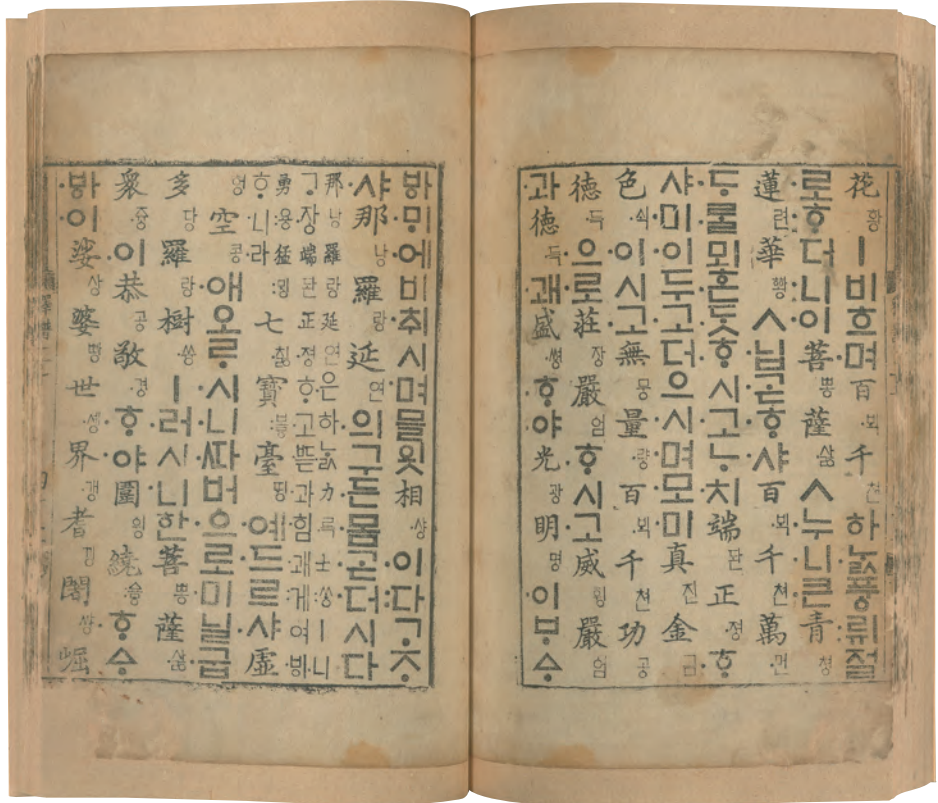 花황ㅣ비흐며百·ᄇᆡᆨ千쳔하ᄂᆞᆳ풍류ㅣ절
·로·ᄒᆞ더·니·이菩뽕薩·삻ㅅ·누·니·큰靑쳥
蓮련華ᅘᅪᆼㅅ·닙·ᄀᆞᆮ·ᄒᆞ·샤百·ᄇᆡᆨ千쳔萬·먼
·ᄃᆞ·ᄅᆞᆯ뫼·혼·ᄃᆞᆺ·ᄒᆞ시·고·ᄂᆞ·치端돤正·졍·ᄒᆞ
·샤·미·이두·고더·으시·며·모·미眞진金금
色·ᄉᆡᆨ·이시·고無뭉量·량百·ᄇᆡᆨ千쳔功공
德·득·으로莊장嚴엄·ᄒᆞ시·고威ᅙᅱᆼ嚴엄
·과德·득·괘盛·쎵·ᄒᆞ·야光광明명·이ᄇᆞᅀᆞ
·바ᄆᆡ·에비·취시·며믈읫相·샹·이:다ᄀᆞᄌᆞ
·샤那낭羅랑延연·의구·든·몸·ᄀᆞᆮ더·시다
那낭羅랑延연·은하ᄂᆞᆳ力·륵士:ᄊᆞᆼㅣ·니
·ᄀᆞ·장端돤正·졍·ᄒᆞ·고·ᄠᅳᆮ·과·힘·괘:게여·ᄫᅵ
勇:용猛:ᄆᆡᆼ
·ᄒᆞ·니·라七·칧寶:봏臺ᄄᆡᆼ·예·드르·샤虛헝
空콩·애오ᄅᆞ·시니·ᄯᅡ버·으·로·미닐·굽
多당羅랑樹·쓩ㅣ·러시·니·한菩뽕薩·삻
衆·즁·이恭공敬·경·ᄒᆞ·야圍윙繞:ᅀᅭᇢ·ᄒᆞᅀᆞ
·ᄫᅡ·이娑상婆빵世·솅界·갱耆낑闍썅崛